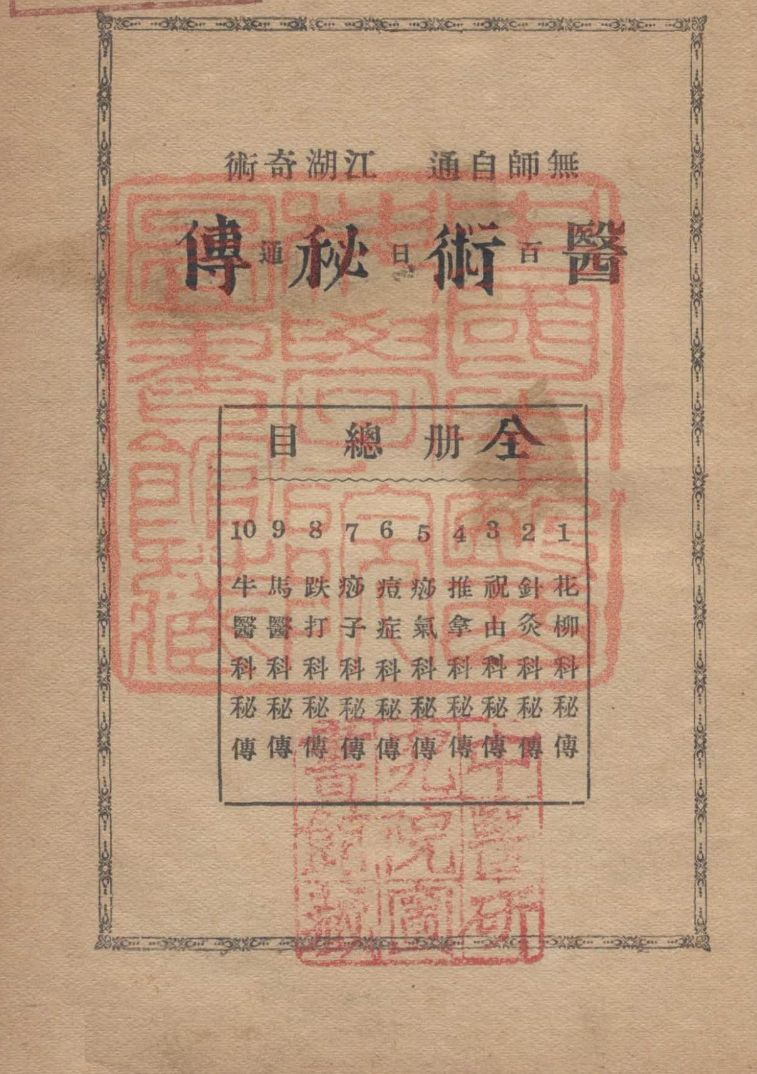 無師自通　江湖奇術
醫百術日秘通傳
全册總目
1 花柳科秘傳
2 針灸科秘傳
3 祝由科秘傳
4 推拿科秘傳
5 痧氣科秘傳
6 痘症科秘傳
7 痧子科秘傳
8 跌打科秘傳
9 馬醫科秘傳
10 牛醫科秘傳
中醫研
究院圖
書館藏